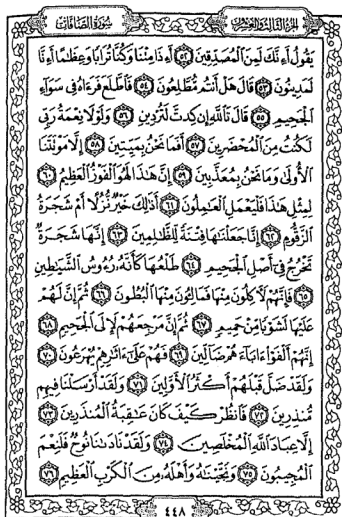 الجزء الثالث والعشرون سُورَةُ الصَّافَاتِ
يَقُولُ أَءِنَّكَ لَمِنَ ٱلْمُصَدِّقِينَ ٥٢ أَءِذَا مِتْنَا وَكُنَّا تُرَابًا وَعِظَٰمًا أَءِنَّا
لَمَدِينُونَ ٥٣ قَالَ هَلْ أَنتُم مُّطَّلِعُونَ ٥٤ فَٱطَّلَعَ فَرَءَاهُ فِي سَوَآءِ
ٱلْجَحِيمِ ٥٥ قَالَ تَٱللَّهِ إِن كِدتَّ لَتُرْدِينِ ٥٦ وَلَوْلَا نِعْمَةُ رَبِّي
لَكُنتُ مِنَ ٱلْمُحْضَرِينَ ٥٧ أَفَمَا نَحْنُ بِمَيِّتِينَ ٥٨ إِلَّا مَوْتَتَنَا
ٱلْأُولَىٰ وَمَا نَحْنُ بِمُعَذَّبِينَ ٥٩ إِنَّ هَٰذَا لَهُوَ ٱلْفَوْزُ ٱلْعَظِيمُ ٦٠
لِمِثْلِ هَٰذَا فَلْيَعْمَلِ ٱلْعَٰمِلُونَ ٦١ أَذَٰلِكَ خَيْرٌ نُّزُلًا أَمْ شَجَرَةُ
ٱلزَّقُّومِ ٦٢ إِنَّا جَعَلْنَٰهَا فِتْنَةً لِّلظَّٰلِمِينَ ٦٣ إِنَّهَا شَجَرَةٌ
تَخْرُجُ فِيٓ أَصْلِ ٱلْجَحِيمِ ٦٤ طَلْعُهَا كَأَنَّهُۥ رُءُوسُ ٱلشَّيَٰطِينِ
٦٥ فَإِنَّهُمْ لَأٓكِلُونَ مِنْهَا فَمَالِـُٔونَ مِنْهَا ٱلْبُطُونَ ٦٦ ثُمَّ إِنَّ لَهُمْ
عَلَيْهَا لَشَوْبًا مِّنْ حَمِيمٍ ٦٧ ثُمَّ إِنَّ مَرْجِعَهُمْ لَإِلَى ٱلْجَحِيمِ ٦٨
إِنَّهُمْ أَلْفَوْا۟ ءَابَآءَهُمْ ضَآلِّينَ ٦٩ فَهُمْ عَلَىٰٓ ءَاثَٰرِهِمْ يُهْرَعُونَ ٧٠
وَلَقَدْ ضَلَّ قَبْلَهُمْ أَكْثَرُ ٱلْأَوَّلِينَ ٧١ وَلَقَدْ أَرْسَلْنَا فِيهِم
مُّنذِرِينَ ٧٢ فَٱنظُرْ كَيْفَ كَانَ عَٰقِبَةُ ٱلْمُنذَرِينَ ٧٣
إِلَّا عِبَادَ ٱللَّهِ ٱلْمُخْلَصِينَ ٧٤ وَلَقَدْ نَادَىٰنَا نُوحٌ فَلَنِعْمَ
ٱلْمُجِيبُونَ ٧٥ وَنَجَّيْنَٰهُ وَأَهْلَهُۥ مِنَ ٱلْكَرْبِ ٱلْعَظِيمِ ٧٦
٤٤٨